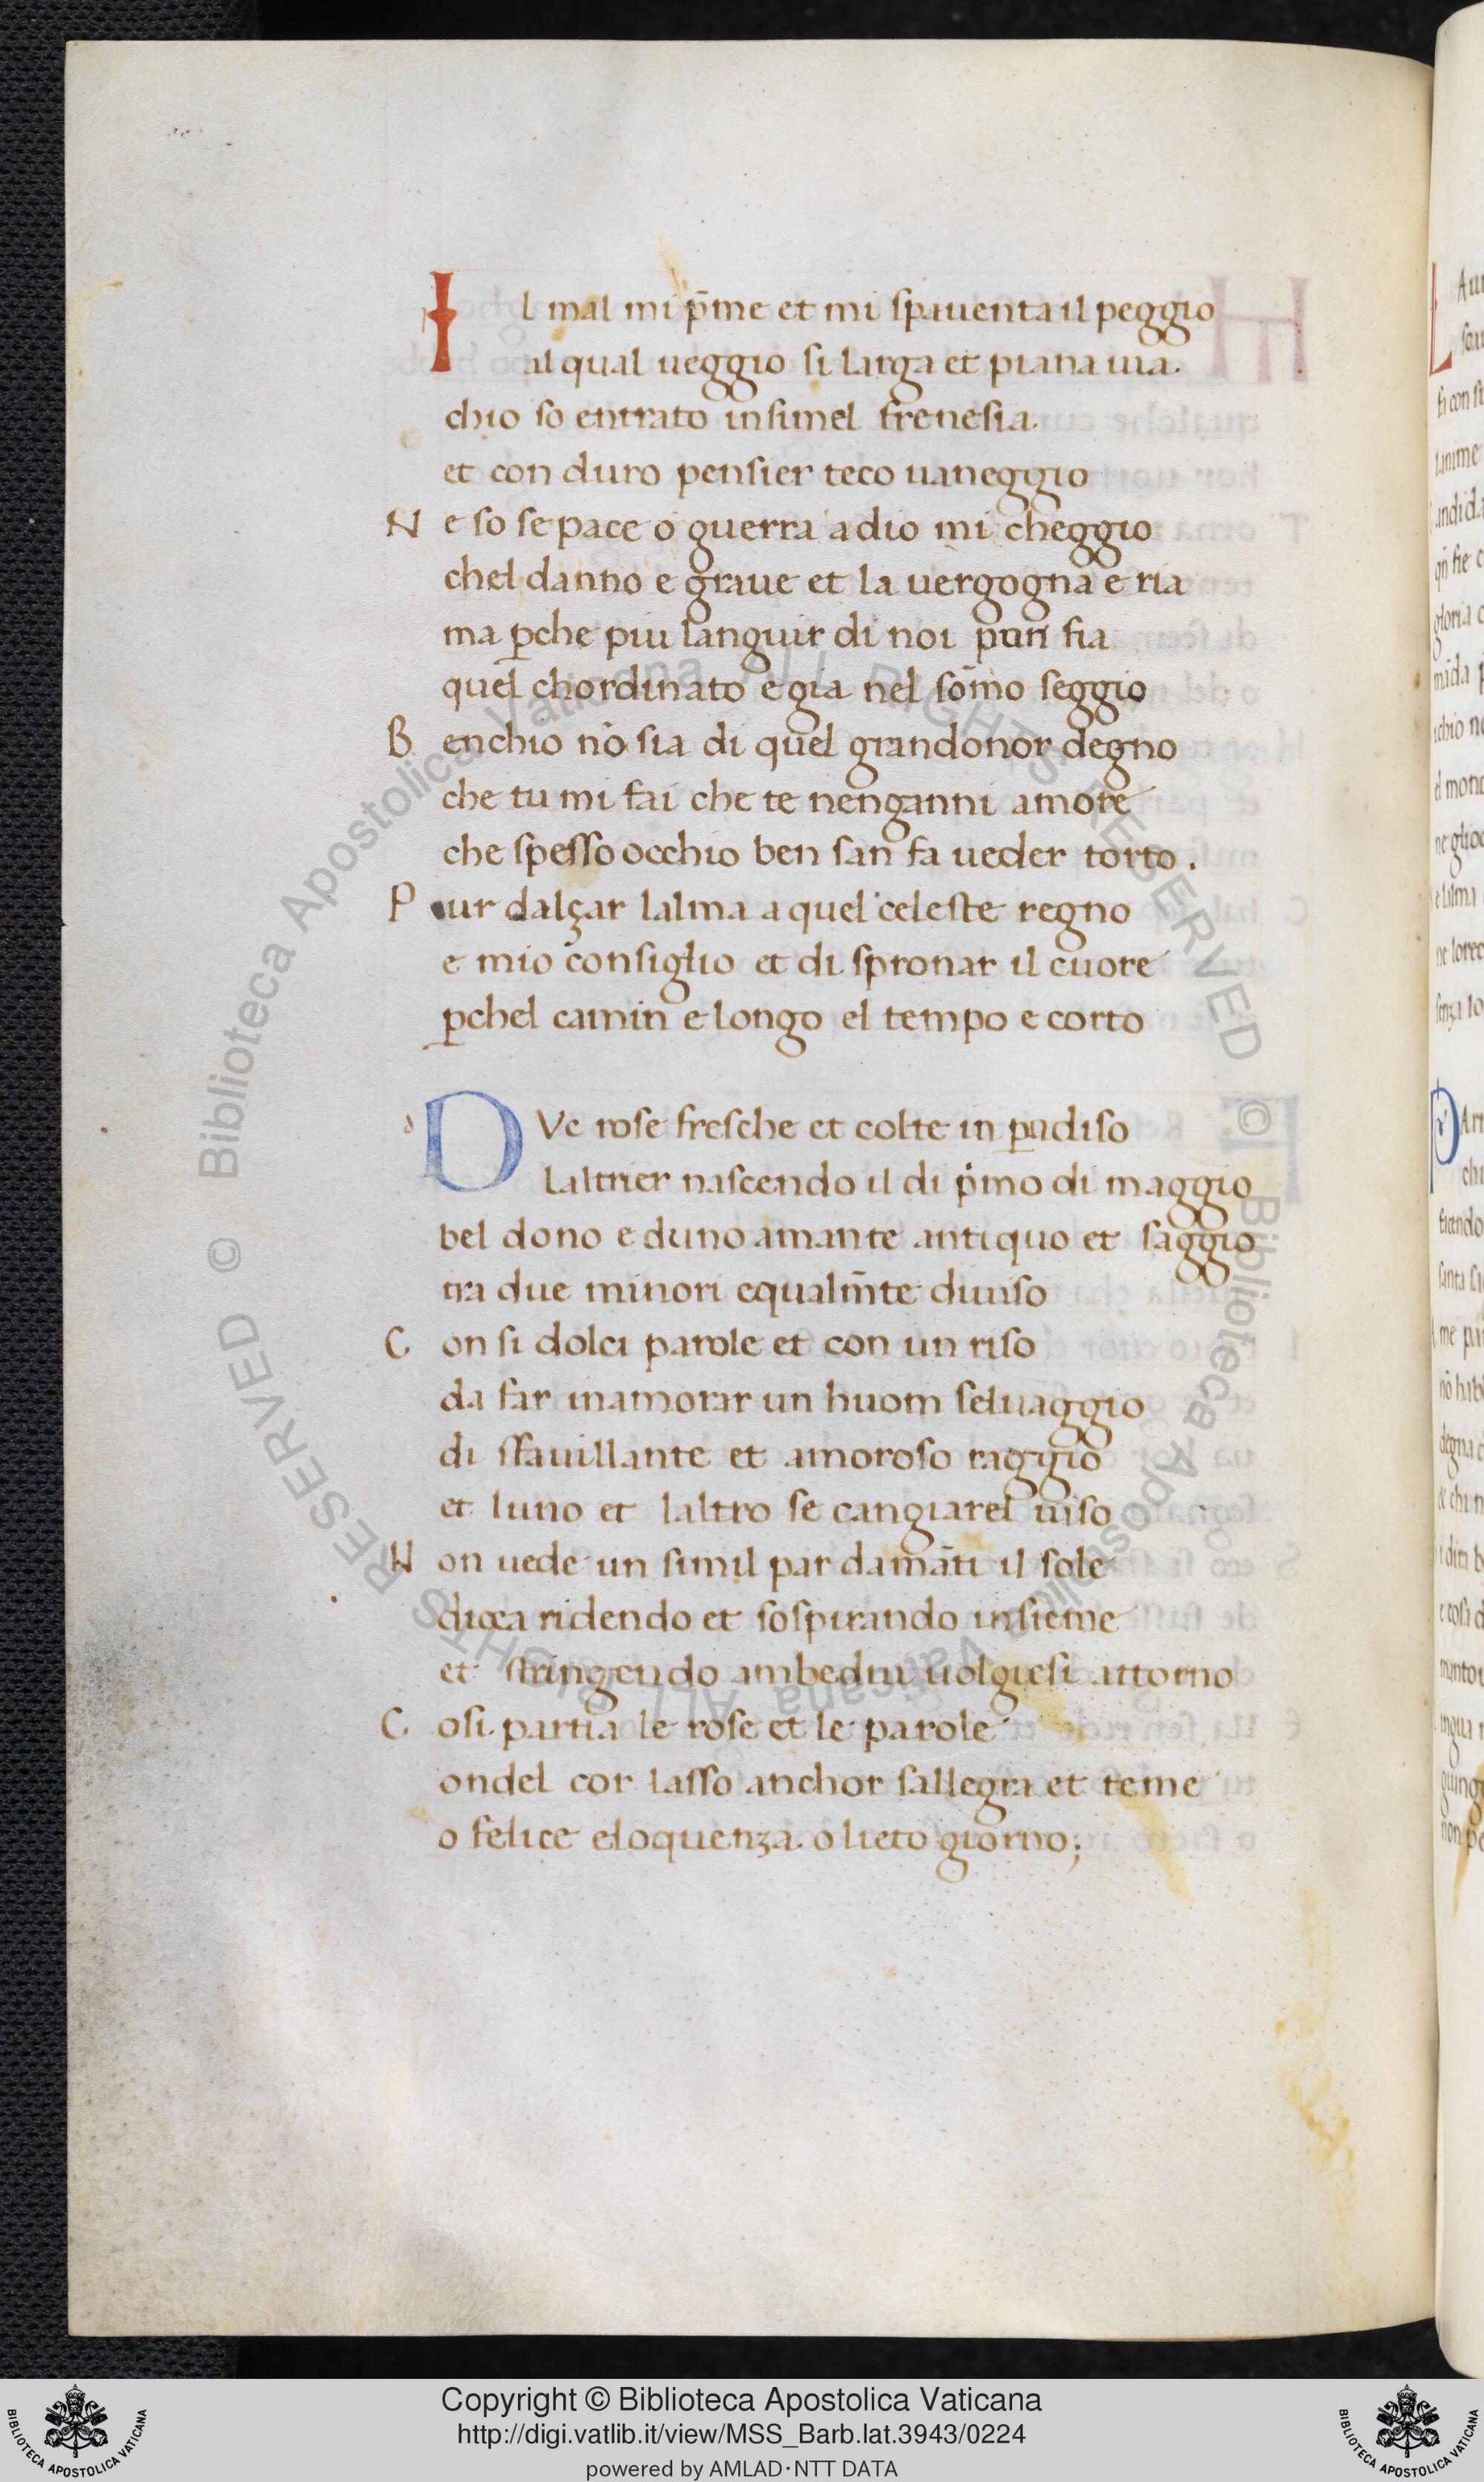 Il mal mi p̄me et mi spauenta il peggio
al qual ueggio si larga et piana uia.
chio so entrato in simel frenesia.
et con duro pensier teco uaneggio
Ne so se pace o guerra a dio mi cheggio
chel danno e graue et la uergogna e ria
ma ꝑche piu languir di noi pur fia
quel chordinato e gia nel som̄o seggio
Benchio nō sia di quel grandonor degno
che tu mi fai che te nenganni amore
che spesso occhio ben san fa ueder torto.
Pur dalçar lalma a quel celeste regno
e mio consiglio et di spronar il cuore
ꝑchel camin e longo el tempo e corto
DVe rose fresche et colte in ꝑadiso
laltrier nascendo il di p̍mo di maggio
bel dono e duno amante antiquo et saggio
tra due minori equalm̄te diuiso
Con si dolci parole et con un riso
da far inamorar un huom seluaggio
di sfauillante et amoroso raggio
et luno et laltro se cangiarel uiso
Non uede un simil par damāti il sole
dicea ridendo et sospirando insieme
et stringendo ambedui uolgiesi attorno
Cosi partia le rose et le parole
ondel cor lasso anchor sallegra et teme
o felice eloquenza o lieto giorno;
Copyright © Biblioteca Apostolica Vaticana
http://digi.vatlib.it/view/MSS_Barb.lat.3943/0224
powered by AMLAD·NTT DATA